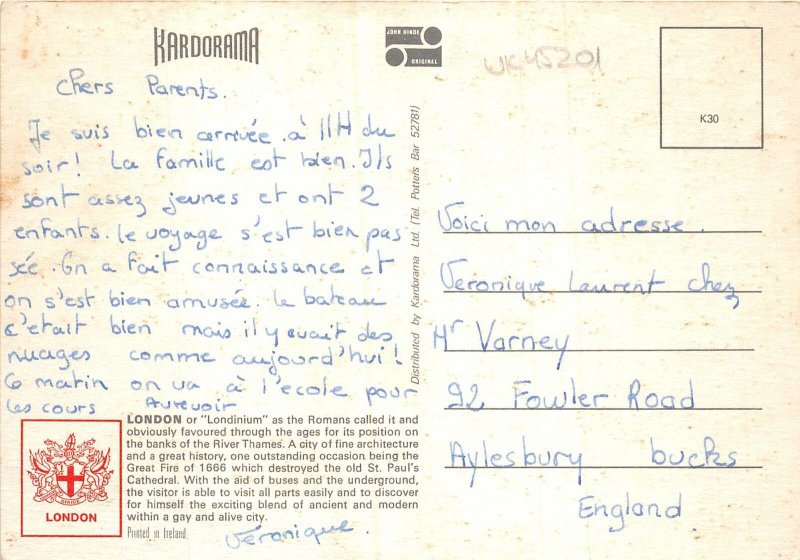 KARDORAMA
JOHN HINDE
ORIGINAL
UK45201
K30
Chers Parents.
Je suis bien arrivée à 11H du
soir! La famille est bien. Ils
sont assez jeunes et ont 2
enfants. le voyage s'est bien pas
sée. On a fait connaissance et
on s'est bien amusée. le bateau
c'etait bien mais il y avait des
nuages comme aujourd'hui!
Ce matin on va à l'ecole pour
les cours Aurevoir
Distributed by Kardorama Ltd. (Tel. Potters Bar 52781)
Voici mon adresse.
Veronique Laurent chez
Mr Varney
92 Fowler Road
Aylesbury bucks
England
LONDON or "Londinium" as the Romans called it and
obviously favoured through the ages for its position on
the banks of the River Thames. A city of fine architecture
and a great history, one outstanding occasion being the
Great Fire of 1666 which destroyed the old St. Paul's
Cathedral. With the aid of buses and the underground,
the visitor is able to visit all parts easily and to discover
for himself the exciting blend of ancient and modern
within a gay and alive city.
LONDON
Printed in Ireland
Véronique.